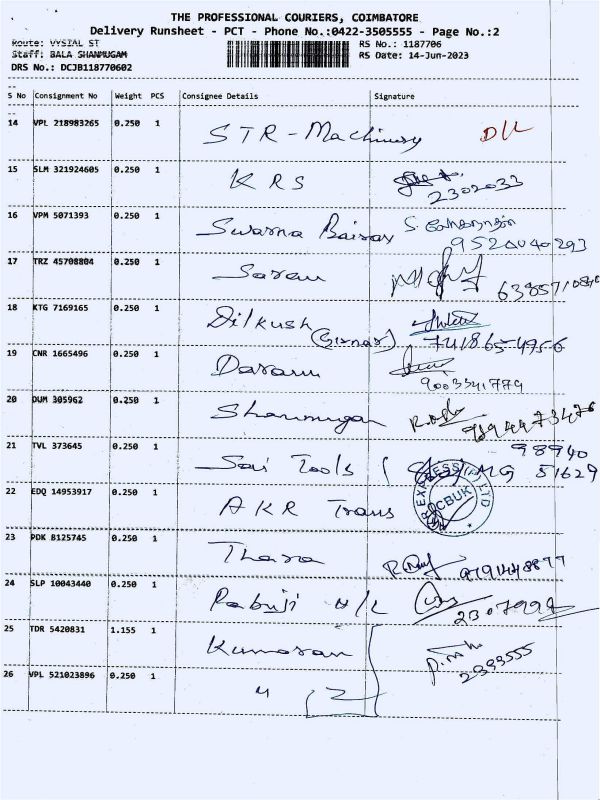 THE PROFESSIONAL COURIERS, COIMBATORE
Delivery Runsheet - PCT - Phone No.:0422-3505555 - Page No.:2
Route: VYSIAL ST RS No.: 1187706
Staff: BALA SHANMUGAM RS Date: 14-Jun-2023
DRS No.: DCJB118770602
S No Consignment No Weight PCS Consignee Details Signature
14 VPL 218983265 0.250 1 STR-Machinery D/L
15 SLM 321924605 0.250 1 KRS
2302033
16 VPM 5071393 0.250 1 Swarna
17 TRZ 45708804 0.250 1
18 KTG 7169165 0.250 1 Dilkush
7418654956
19 CNR 1665496 0.250 1
9003541779
20 DUM 305962 0.250 1 Shanmugan
9894473476
98940
21 TVL 373645 0.250 1 Sai Tools MG 51629
22 EDQ 14953917 0.250 1 AKR Trans
CBUK
23 PDK 8125745 0.250 1 Thara
9791448877
24 SLP 10043440 0.250 1 Pabuji H/L
25 TDR 5420831 1.155 1 Kumaran
2393555
26 VPL 521023896 0.250 1 " 2